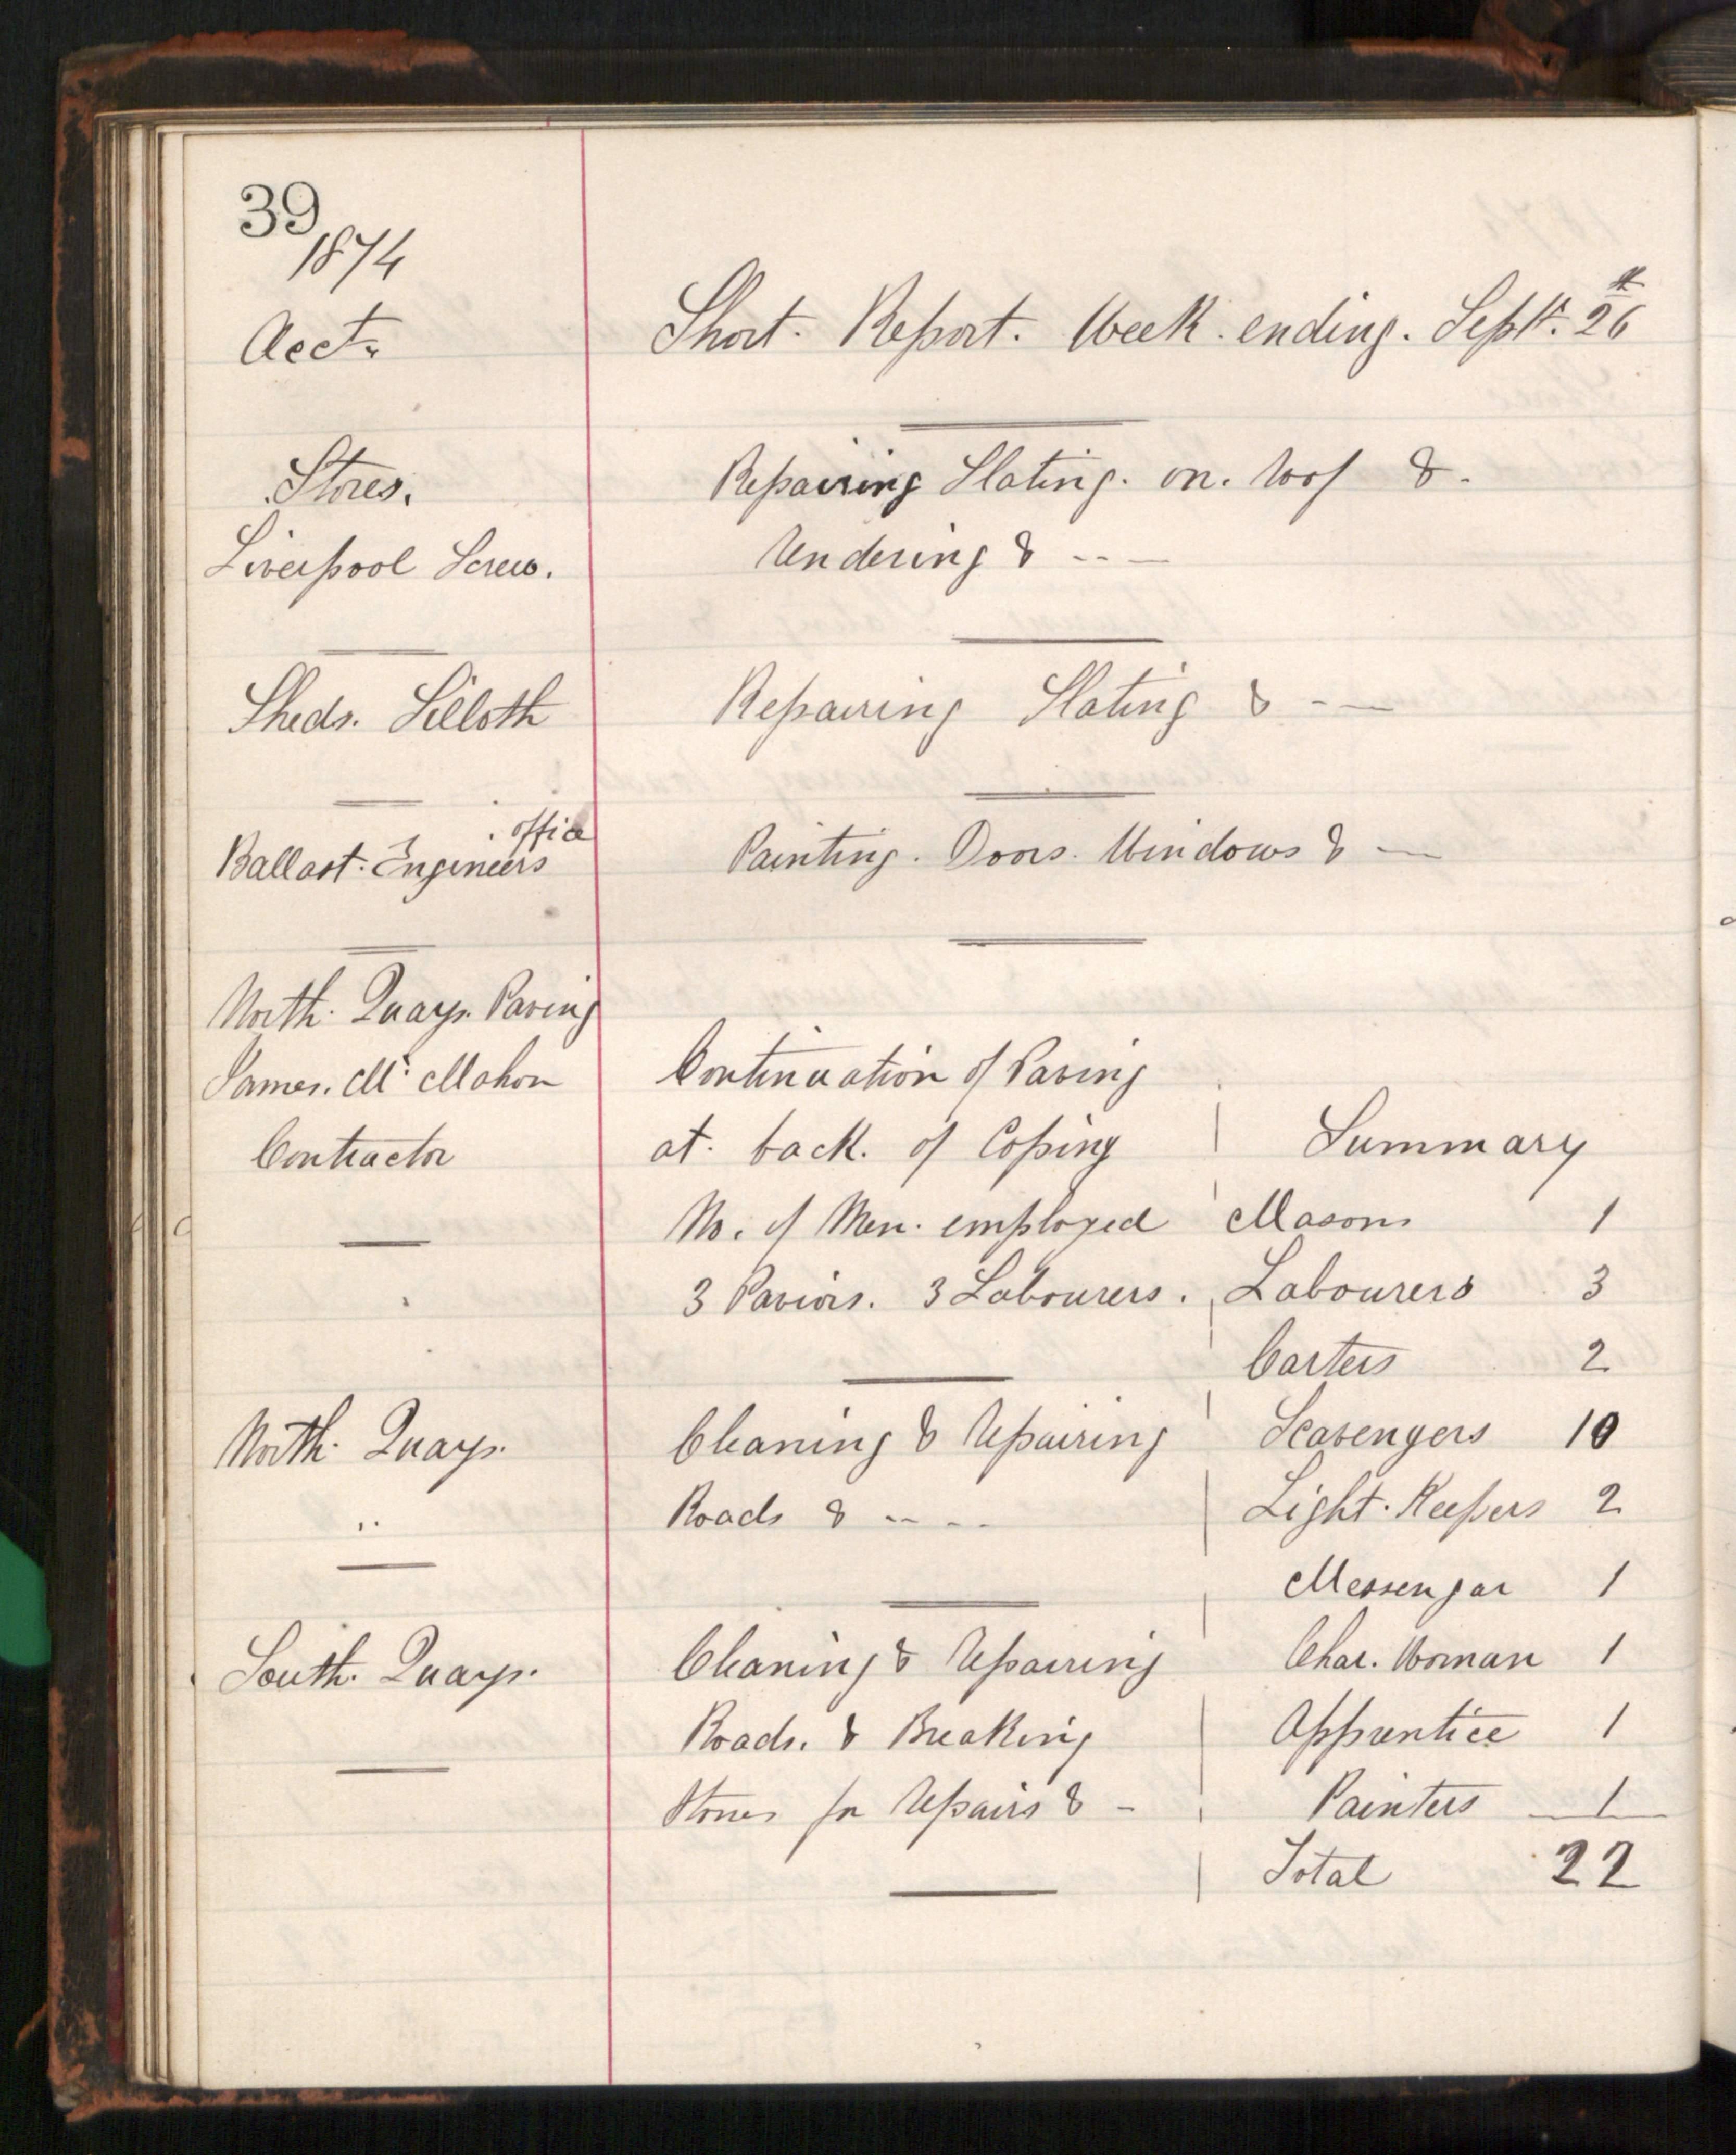 39
1874
Acct. Short. Report. Week. ending. Septr. 26th
Stores. Repairing Slating. on. roof &.
Liverpool Screw. Rendering & -- —
Sheds. Silloth Repairing Slating & - —
. office
Ballast. Engineers Painting. Doors. Windows & —
North. Quays. Paving
James. Mc. Mahon Continuation of Paving
Contractor at. back. of Coping Summary
No. of Men. employed Masons 1
3 Paviors. 3 Labourers. Labourers 3
Carters 2
North. Quays. Cleaning & repairing Scavengers 10
.. Roads & -- -- Light. Keepers 2
Messengar 1
South. Quays. Cleaning & repairing Char. Woman 1
Roads. & Breaking Apprentice 1
Stones for repairs & - Painters 1
Total 22